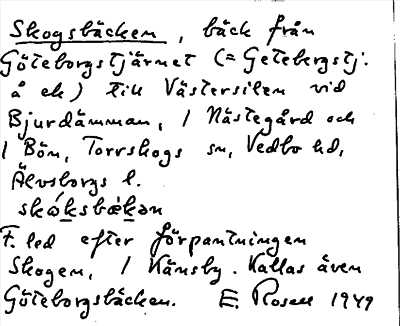 Skogsbäcken, bäck från
Göteborgstjärnet (= Getebergstj.
å ek) till Västersilen vid
Bjurdämman, / Nästegård och
/ Bön, Torrskogs sn, Vedbo hd,
Älvsborgs l.
skó́ksbækən
F. led efter förpantningen
Skogen, / Känsby. Kallas även
Göteborgsbäcken. E. Rosell 1949